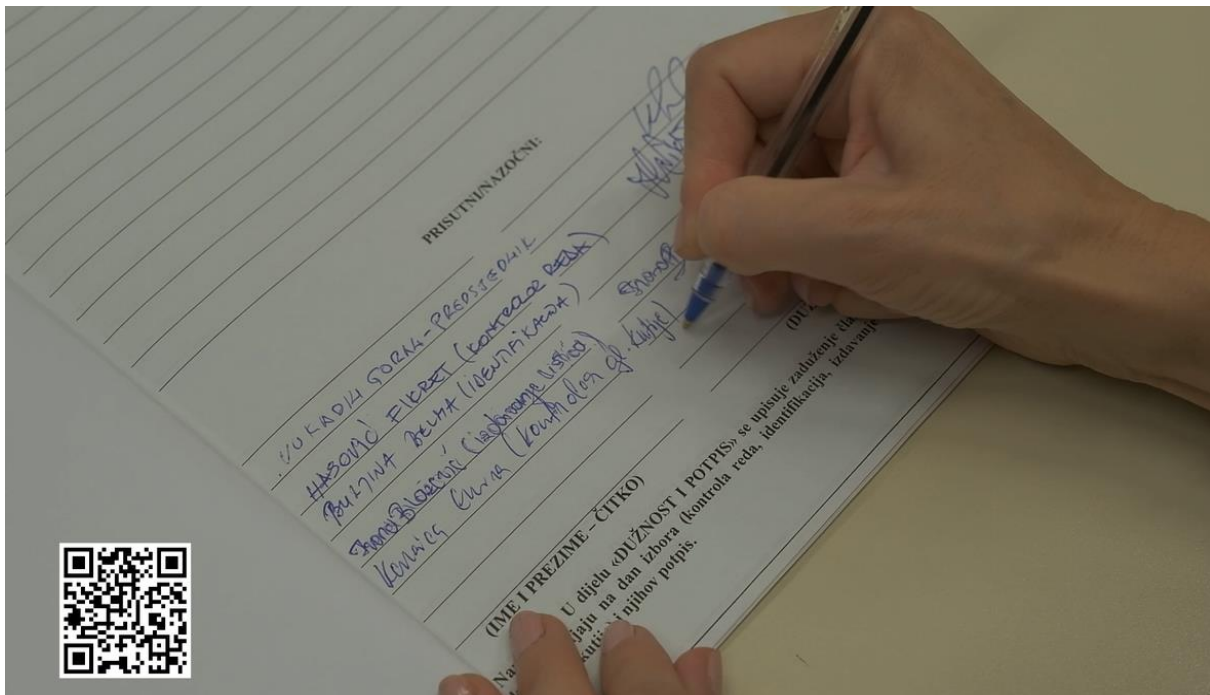 PRISUTNI/NAZOČNI:
VUKADIN GORAN - PREDSJEDNIK
HASOVIĆ FIKRET (KONTROLOR REDA)
BULJINA BELMA (IDENTIFIKACIJA)
(izdavanje listića)
(kontrolor gl. kutije)
(IME I PREZIME – ČITKO)
(DUŽ
U dijelu «DUŽNOST I POTPIS» se upisuje zaduženje čla
jaju na dan izbora (kontrola reda, identifikacija, izdavanje
kutij i njihov potpis.